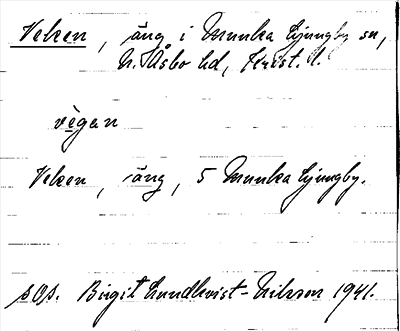 Veken, äng i Munka Ljungby sn,
N. Åsbo hd, Krist. l.
vègan
Veken, äng, 5 Munka Ljungby.
sOp. Birgit Lundkvist-Nilsson 1941.